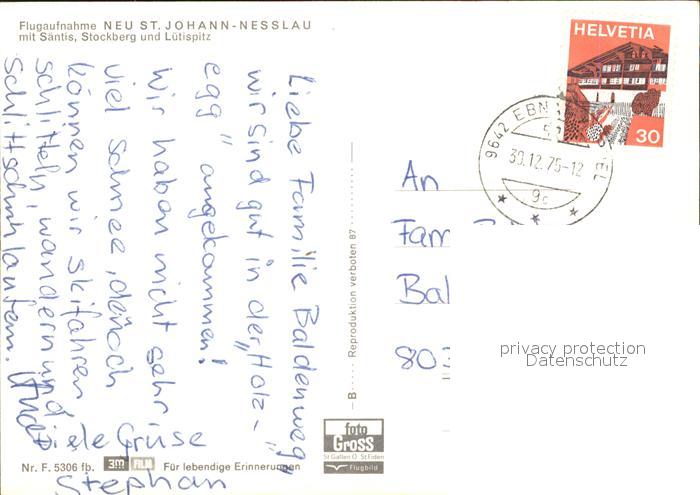 Flugaufnahme NEU ST. JOHANN-NESSLAU
mit Säntis, Stockberg und Lütispitz
HELVETIA
30
9642 EBN
30.12.75-12
9c
Liebe Familie Baldenweg
wir sind gut in der „Holz-
egg" angekommen!
Wir haben nicht sehr
viel Schnee, denoch
können wir skifahren
schlitteln, wandern und
Schlittschuhlaufen.
Viele Grüse
Stephan
An
Fam
Bal
802
B
Reproduktion verboten 87
privacy protection
Datenschutz
foto
GROSS
St Gallen O. St Fiden
Flugbild
Nr. F. 5306 fb. 3M FILM Für lebendige Erinnerungen